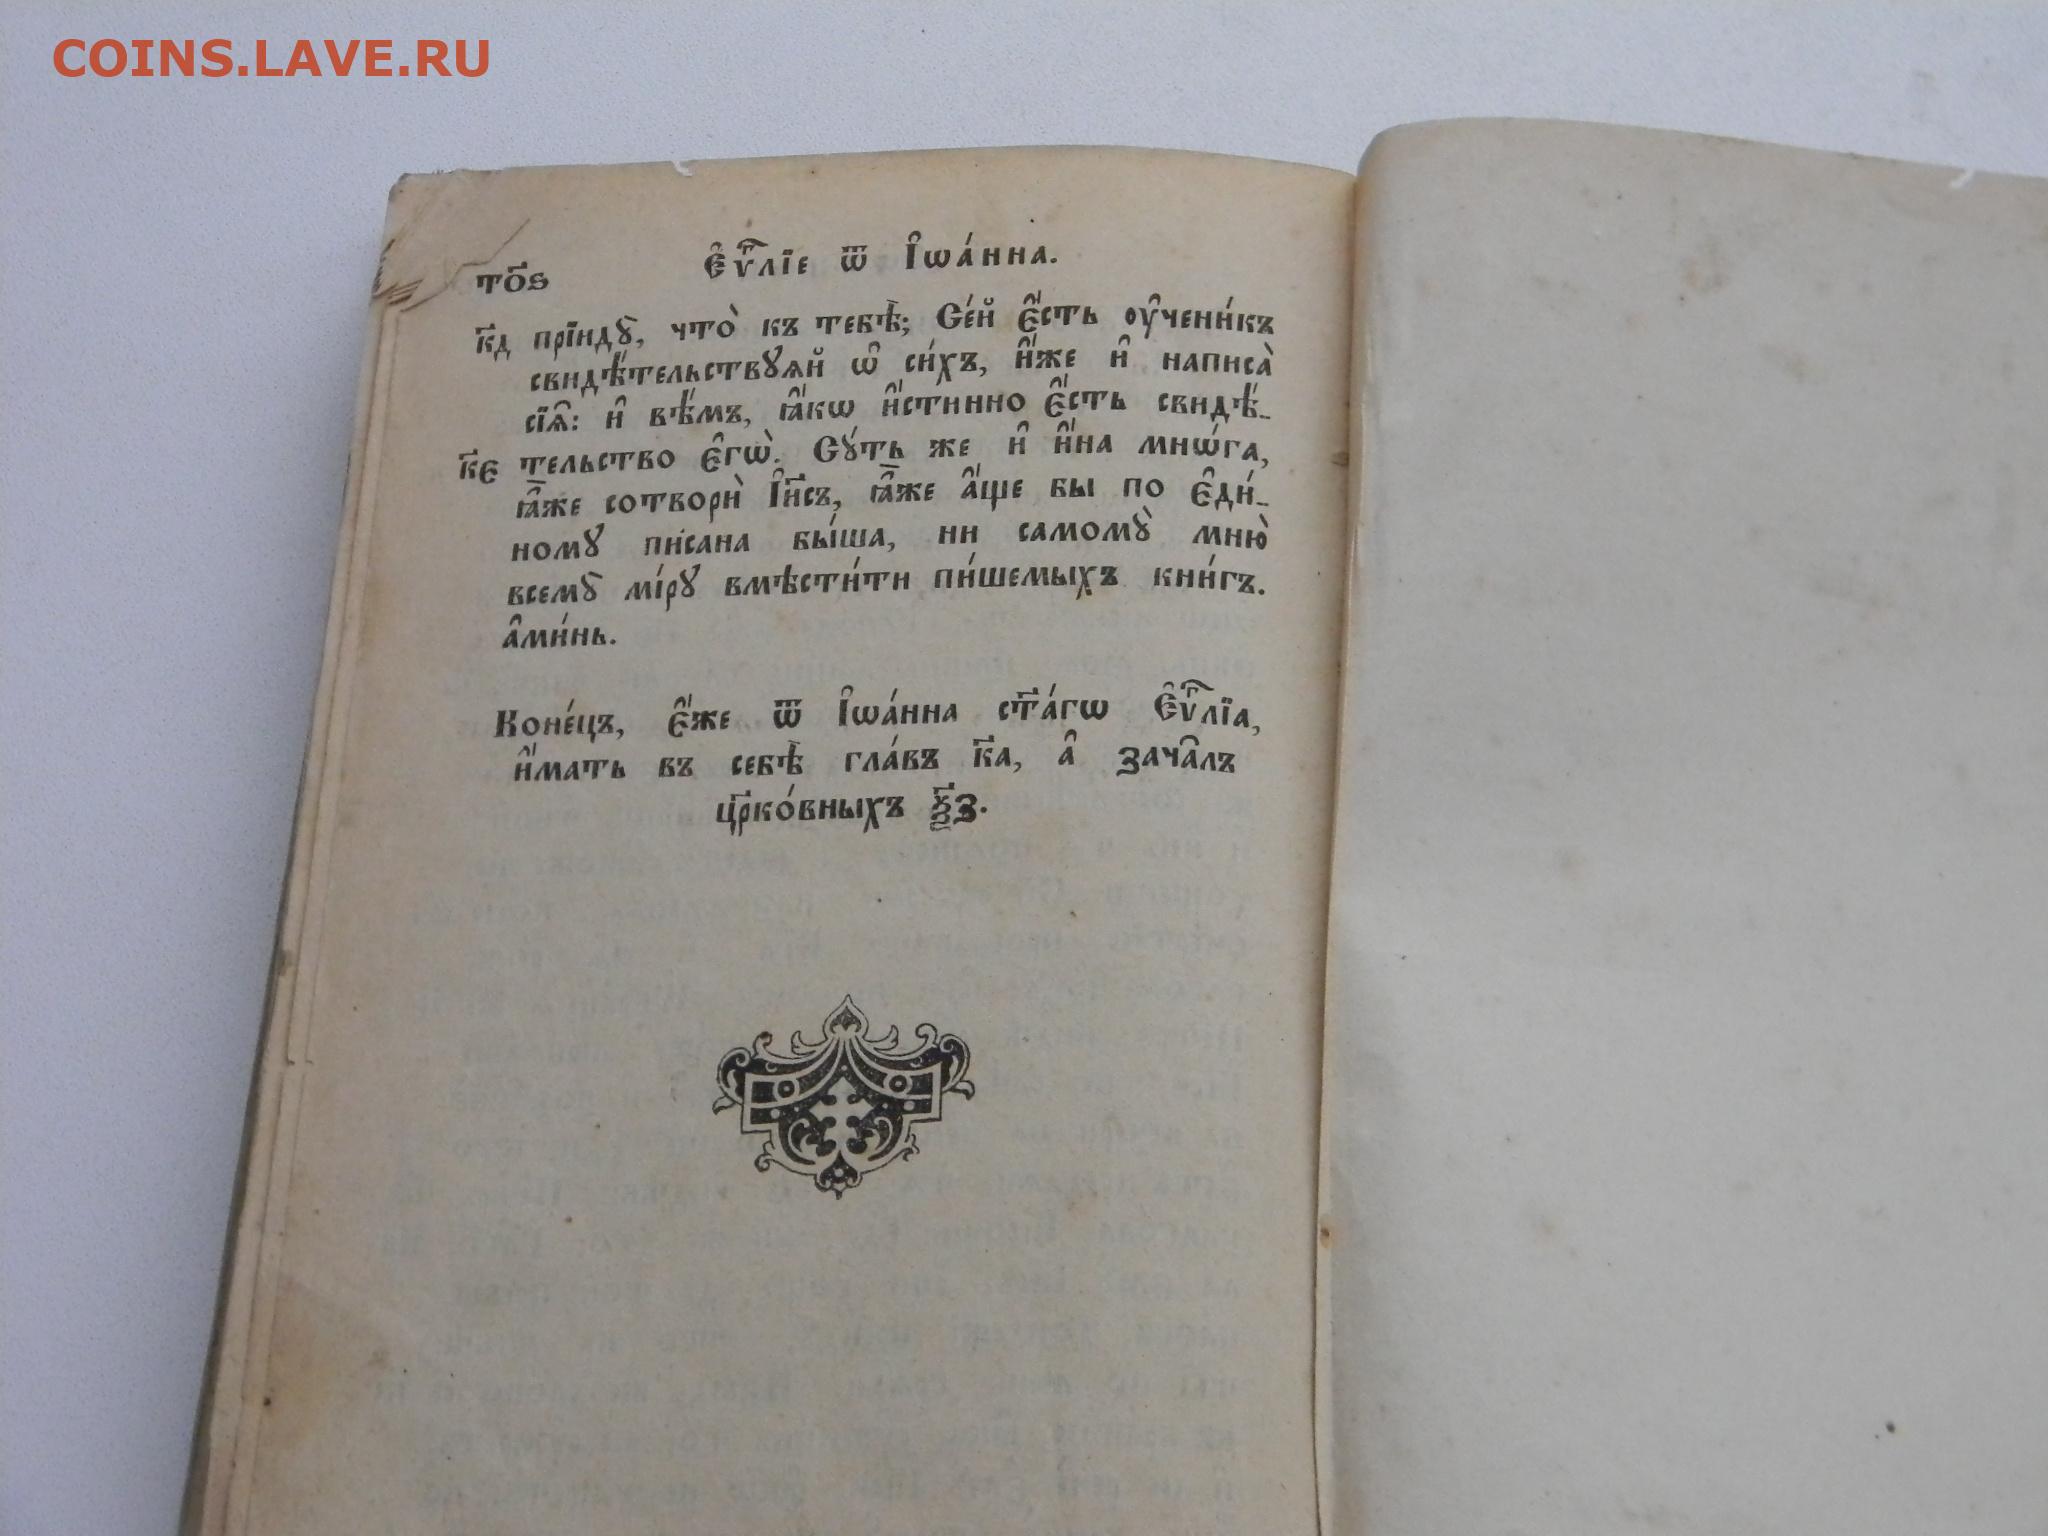 COINS.LAVE.RU
то҃ѕ
Є҆ѵⷢ҇лїе ѿ І҆ѡа́нна.
к҃д прїидꙋ̀, что̀ къ тебѣ̀; Се́й є҆́сть ѹ҆чени́къ
свидѣ́тельствꙋѧй ѡ҆ си́хъ, и҆́же и҆ написа̀
сїѧ̑: и҆ вѣ́мъ, ꙗ҆́кѡ и҆́стинно є҆́сть свидѣ́-
к҃є тельство є҆гѡ̀. Сꙋ́ть же и҆ и҆́на мнѡ́га,
ꙗ҆̀же сотворѝ І҆и҃съ, ꙗ҆̀же а҆́ще бы по є҆ди́-
номꙋ пи́сана бы́ша, ни самомꙋ̀ мню̀
всемꙋ̀ мі́рꙋ вмѣсти́ти пи́шемыхъ кни́гъ.
а҆ми́нь.
Коне́цъ, є҆́же ѿ І҆ѡа́нна ст҃а́гѡ Є҆ѵⷢ҇лїа,
и҆́мать въ себѣ̀ гла́въ к҃а, а҆ зача̑лъ
цр҃ко́вныхъ ѯ҃з.